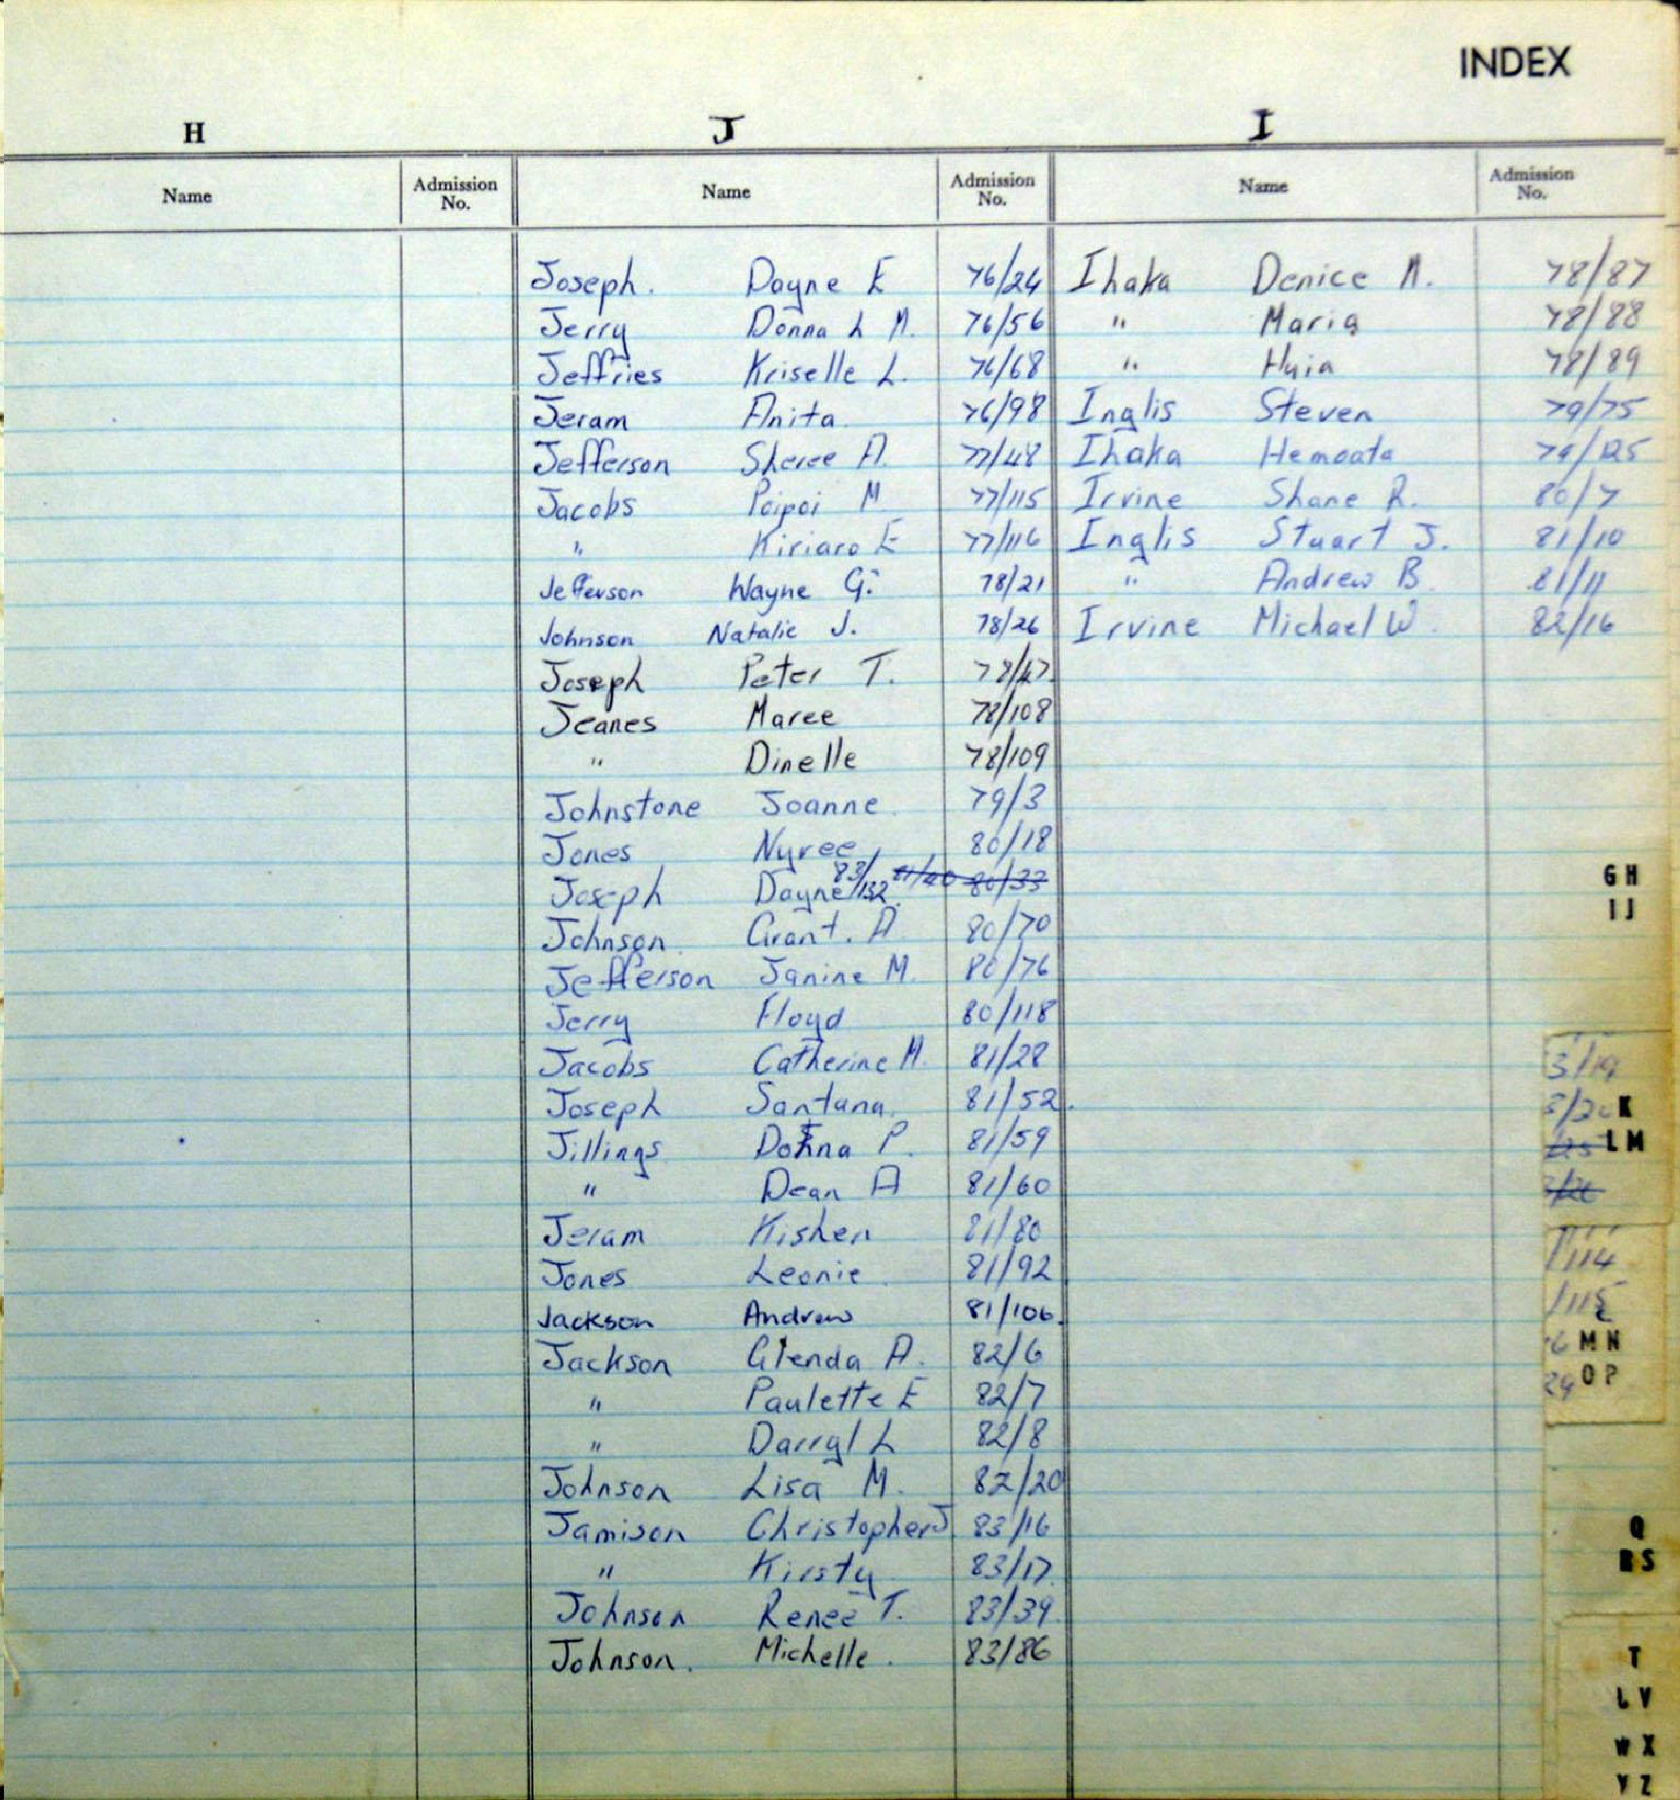 INDEX
H J I
Name Admission No. Name Admission No. Name Admission No.
Joseph. Dayne E 76/24 Ihaka Denice M. 78/87
Jerry Donna L M. 76/56 " Maria 78/88
Jeffries Kriselle L. 76/68 " Huia 78/89
Jeram Anita 76/98 Inglis Steven 79/75
Jefferson Sheree A. 77/48 Ihaka Hemoata 79/125
Jacobs Poipoi M 77/115 Irvine Shane R. 80/7
" Kiriaro E 77/116 Inglis Stuart J. 81/10
Jefferson Wayne G. 78/21 " Andrew B 81/11
Johnson Natalie J. 78/26 Irvine Michael W. 82/16
Joseph Peter T. 78/47
Jeanes Maree 78/108
" Dinelle 78/109
Johnstone Joanne 79/3
Jones Nyree 80/18
Joseph Dayne 83/132 81/40 80/33
Johnson Grant. A 80/70
Jefferson Janine M. 80/76
Jerry Floyd 80/118
Jacobs Catherine M. 81/28
Joseph Santana 81/52.
Jillings Donna P. 81/59
" Dean A 81/60
Jeram Kishen 81/80
Jones Leonie 81/92
Jackson Andrew 81/106.
Jackson Glenda A. 82/6
" Paulette E 82/7
" Darryl L 82/8
Johnson Lisa M. 82/20
Jamison Christopher J 83/16
" Kirsty 83/17
Johnson Renee T. 83/39
Johnson. Michelle. 83/86
G H
I J
K
L M
/114
/115
M N
O P
Q
R S
T
V
W X
Y Z